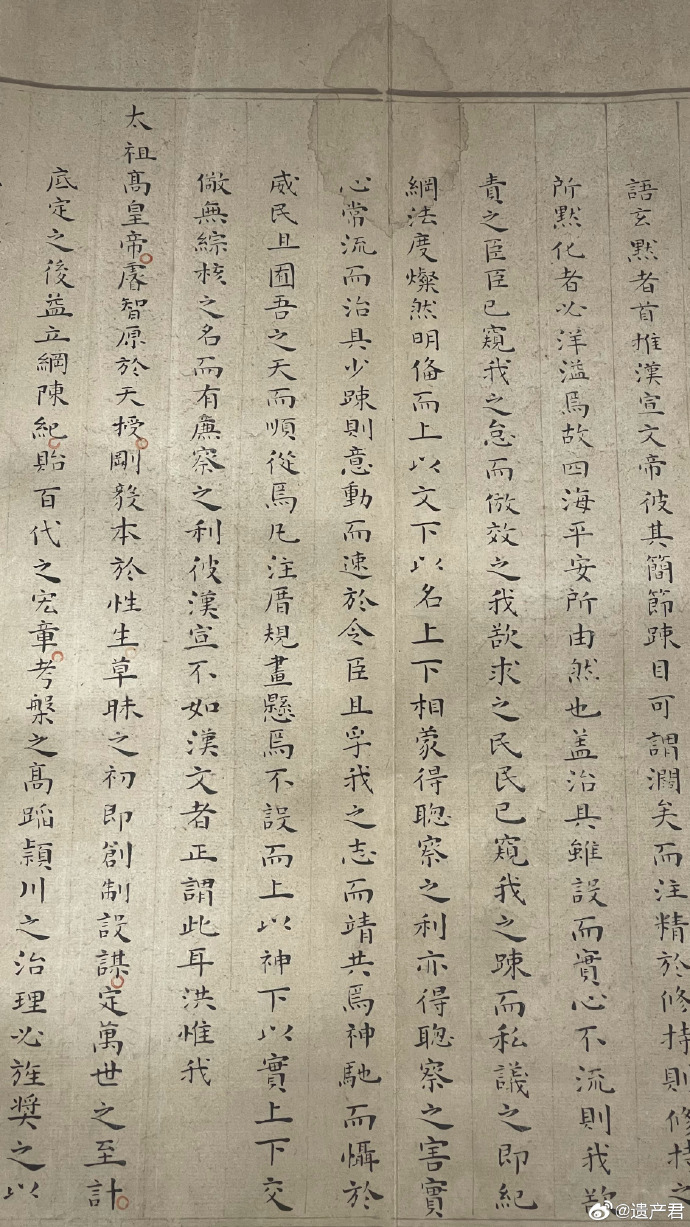 語玄黙者首推漢宣文帝彼其簡節踈目可謂濶矣而注精於修持則修持之
所黙化者必洋溢焉故四海平安所由然也盖治具雖設而實心不流則我欲
責之臣臣已窺我之怠而倣效之我欲求之民民已窺我之踈而私議之即紀
綱法度燦然明俻而上以文下以名上下相蒙得聦察之利亦得聦察之害實
心常流而治具少踈則意動而速於令臣且孚我之志而靖共焉神馳而懾於
威民且囿吾之天而順從焉凡注厝規畫懸焉不設而上以神下以實上下交
儆無綜核之名而有廉察之利彼漢宣不如漢文者正謂此耳洪惟我
太祖髙皇帝睿智原於天授剛毅本於性生草昧之初即創制設謀定萬世之至計
底定之後益立綱陳紀貽百代之宏章考槃之髙蹈穎川之治理必旌奬之以
@遗产君